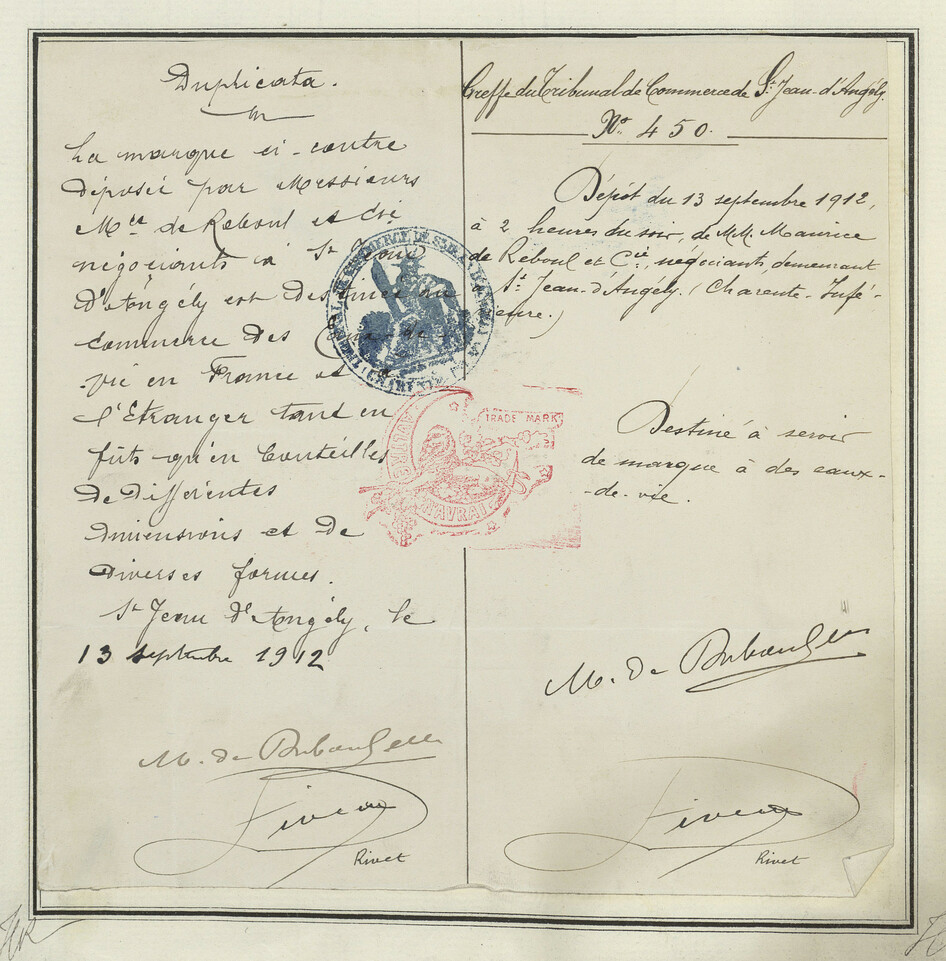 Duplicata.
La marque ci-contre
déposée par Messieurs
Mce de Reboul et Cie
négociants à St Jean
D'Angély est destinée au
commerce des Eaux-de-
-vie en France et à
l'Etranger tant en
futs qu'en bouteilles
de différentes
dimensions et de
diverses formes.
St Jean d'Angély, le
13 septembre 1912
M. de Reboul et Cie
Rivet
Rivet
Greffe du Tribunal de Commerce de St Jean-d'Angély.
No. 450.
Dépôt du 13 septembre 1912,
à 2 heures du soir, de M.M. Maurice
de Reboul et Cie, négociants, demeurant à
St Jean-d'Angely. (Charente-Infé-
rieure.)
TRADE MARK
Destiné à servir
de marque à des eaux-
-de-vie.
M. de Reboul et Cie
Rivet
Rivet